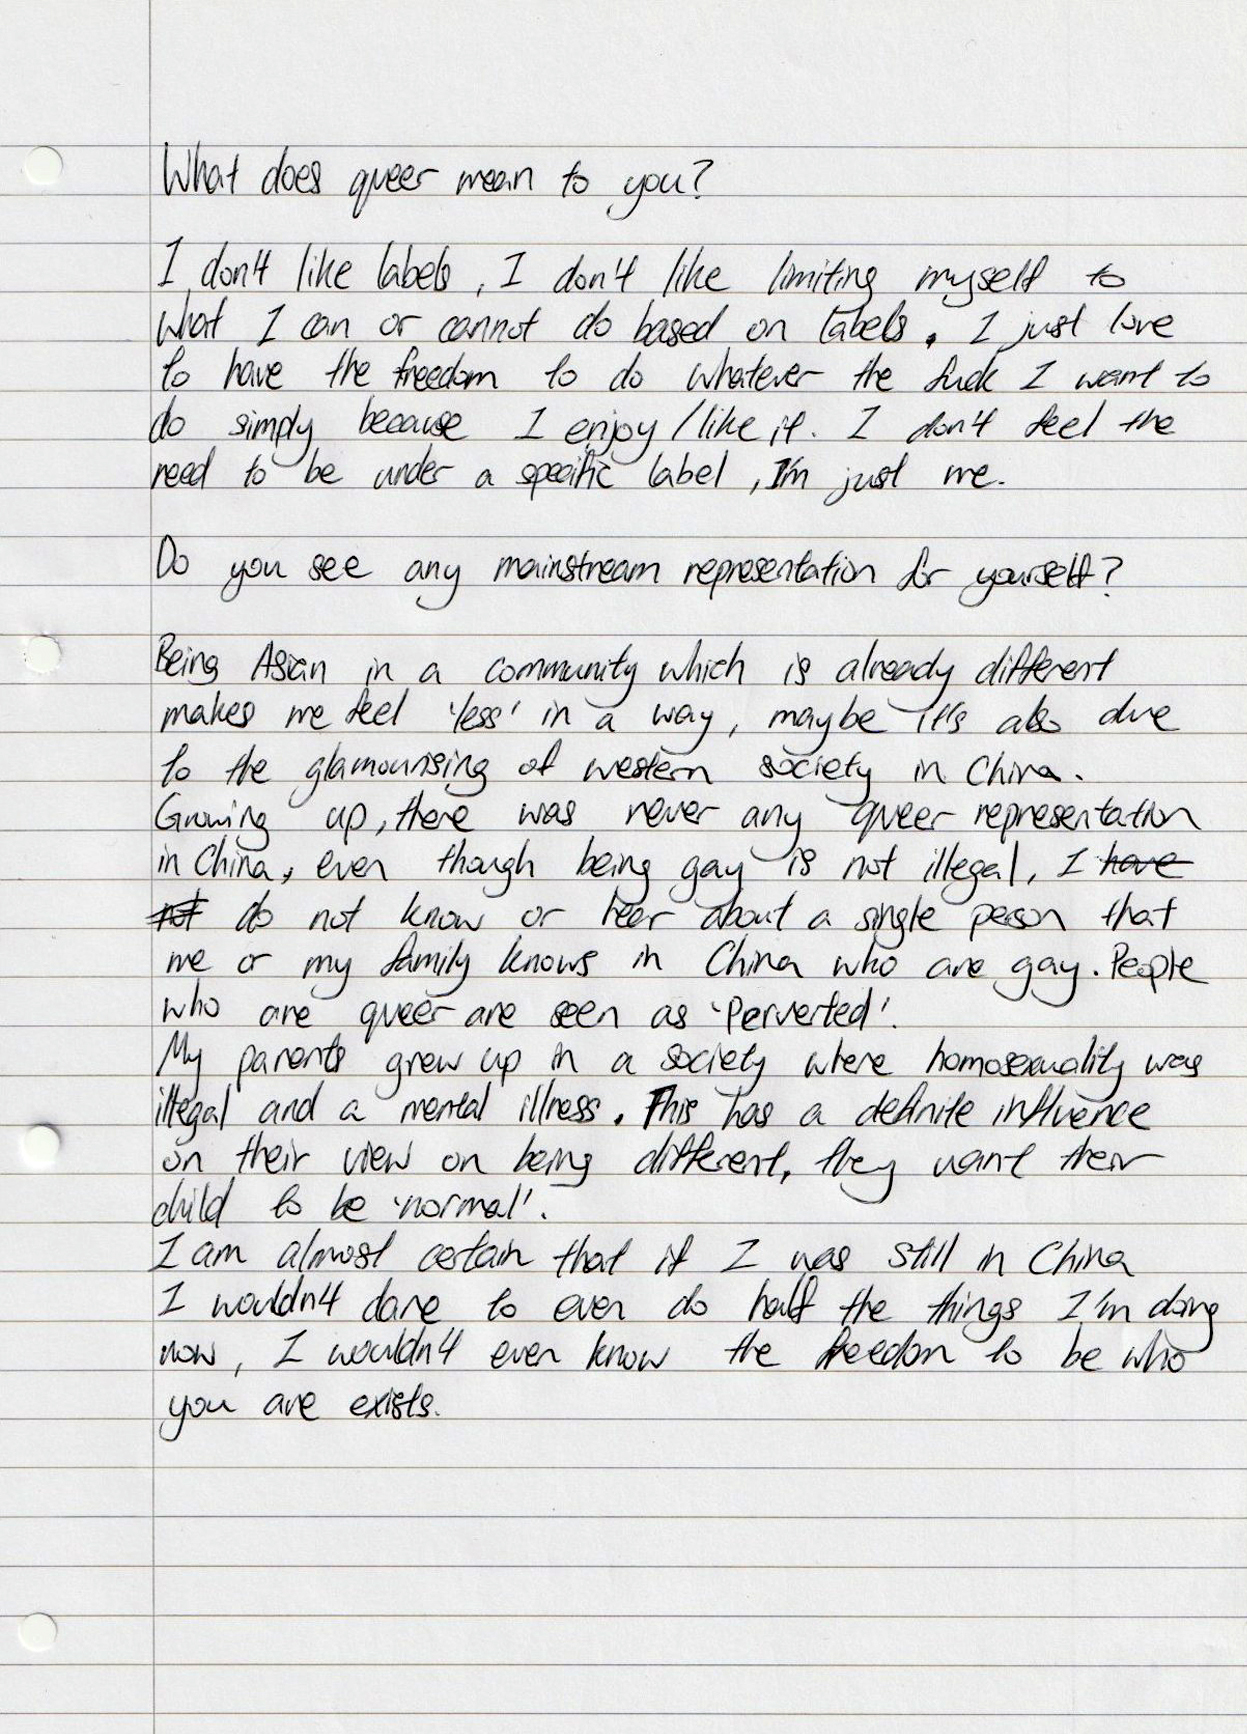 What does queer mean to you?
I don't like labels, I don't like limiting myself to
what I can or cannot do based on labels. I just love
to have the freedom to do whatever the fuck I want to
do simply because I enjoy/like it. I don't feel the
need to be under a specific label, I'm just me.
Do you see any mainstream representation for yourself?
Being Asian in a community which is already different
makes me feel 'less' in a way, maybe it's also due
to the glamourising of western society in China.
Growing up, there was never any queer representation
in China, even though being gay is not illegal, I have
not do not know or heer about a single person that
me or my family knows in China who are gay. People
who are queer are seen as 'Perverted'.
My parents grew up in a society where homosexuality was
illegal and a mental illness. This has a definite influence
on their view on being different, they want their
child to be 'normal'.
I am almost certain that if I was still in China
I wouldn't dare to even do half the things I'm doing
now, I wouldn't even know the freedom to be who
you are exists.